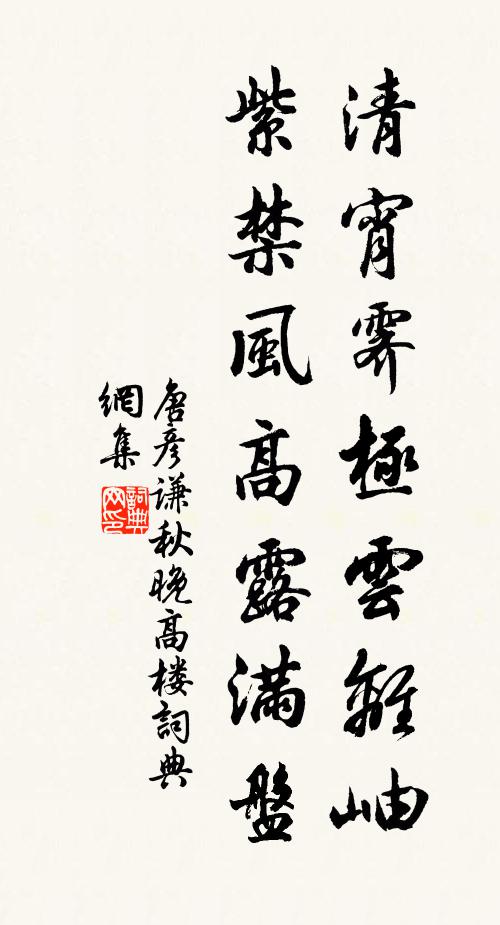 清宵霽極雲離岫
紫禁風高露滿盤
唐彥谦秋晚高楼詞典
網集
詞典
网印